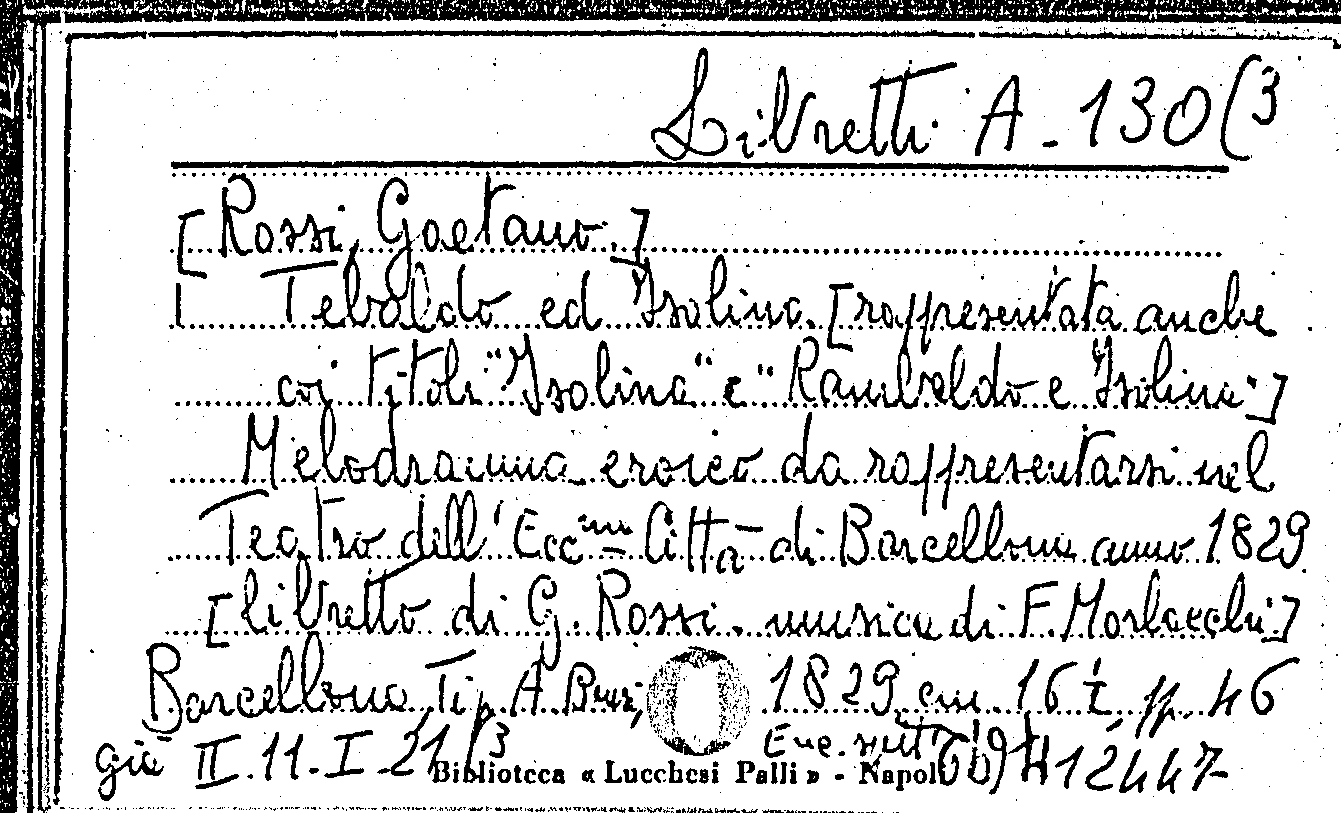 Libretti A-130(3
[Rossi, Gaetano.]
Tebaldo ed Isolina. [rappresentata anche
coi titoli "Isolina" e "Rambaldo e Isolina"]
Melodramma eroico da rappresentarsi nel
Teatro dell'Ecc.ma Città di Barcellona anno 1829
[libretto di G. Rossi. musica di F. Morlacchi]
Barcellona, Tip. A. Brusi, 1829 cm. 16 ½, pp. 46
già II.11.I.21(3
Biblioteca « Lucchesi Palli » - Napoli